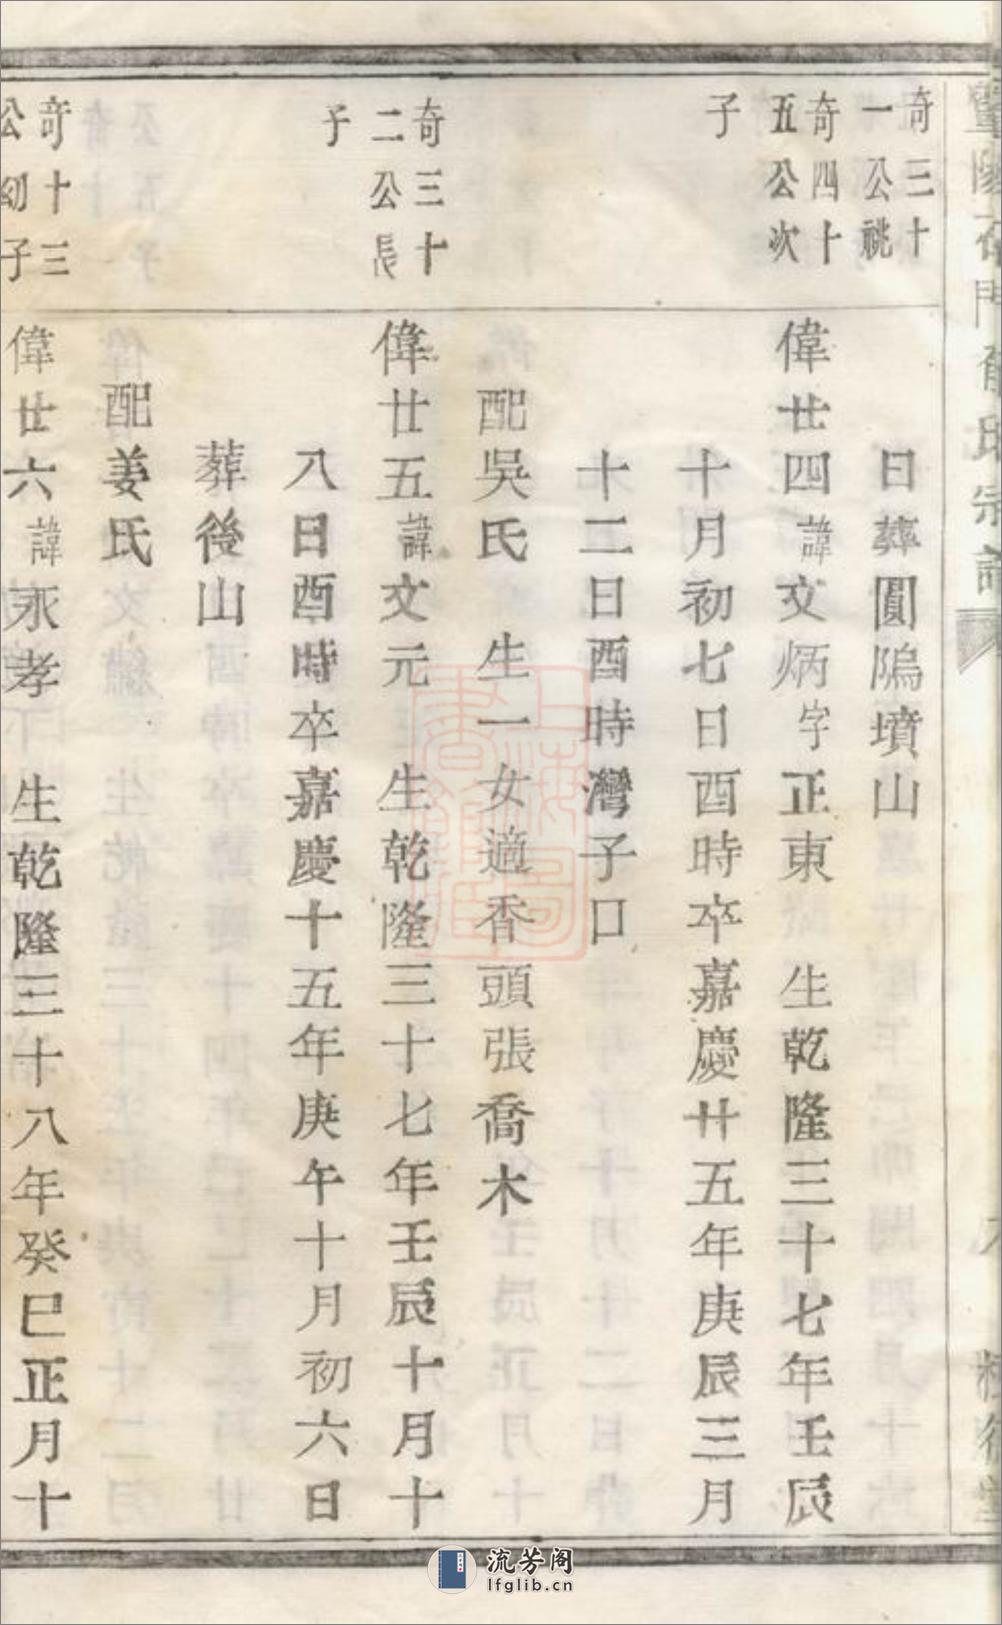 奇三十
一公祧
奇四十
五公次
子
奇三十
二公長
子
奇十三
公幼子
日葬圓隖墳山
偉廿四諱文炳字正東 生乾隆三十七年壬辰
十月初七日酉時卒嘉慶廿五年庚辰三月
十二日酉時灣子口
配吳氏 生一女適香頭張喬木
偉廿五諱文元 生乾隆三十七年壬辰十月十
八日酉時卒嘉慶十五年庚午十月初六日
葬後山
配姜氏
偉廿六諱永孝 生乾隆三十八年癸巳正月十
上海圖書館藏
流芳阁
lfglib.cn